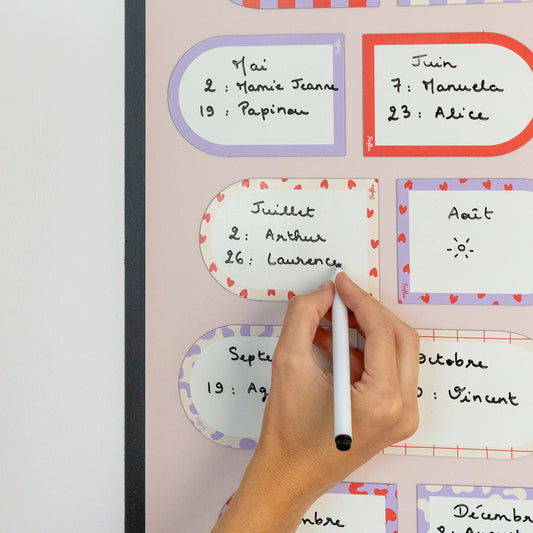 Mai
2 : Mamie Jeanne
19 : Papinou
Juin
7 : Manuela
23 : Alice
Juillet
2 : Arthur
26 : Laurence
Août
Sept
19 : Ag
Octobre
: Vincent
mbre
Décembr